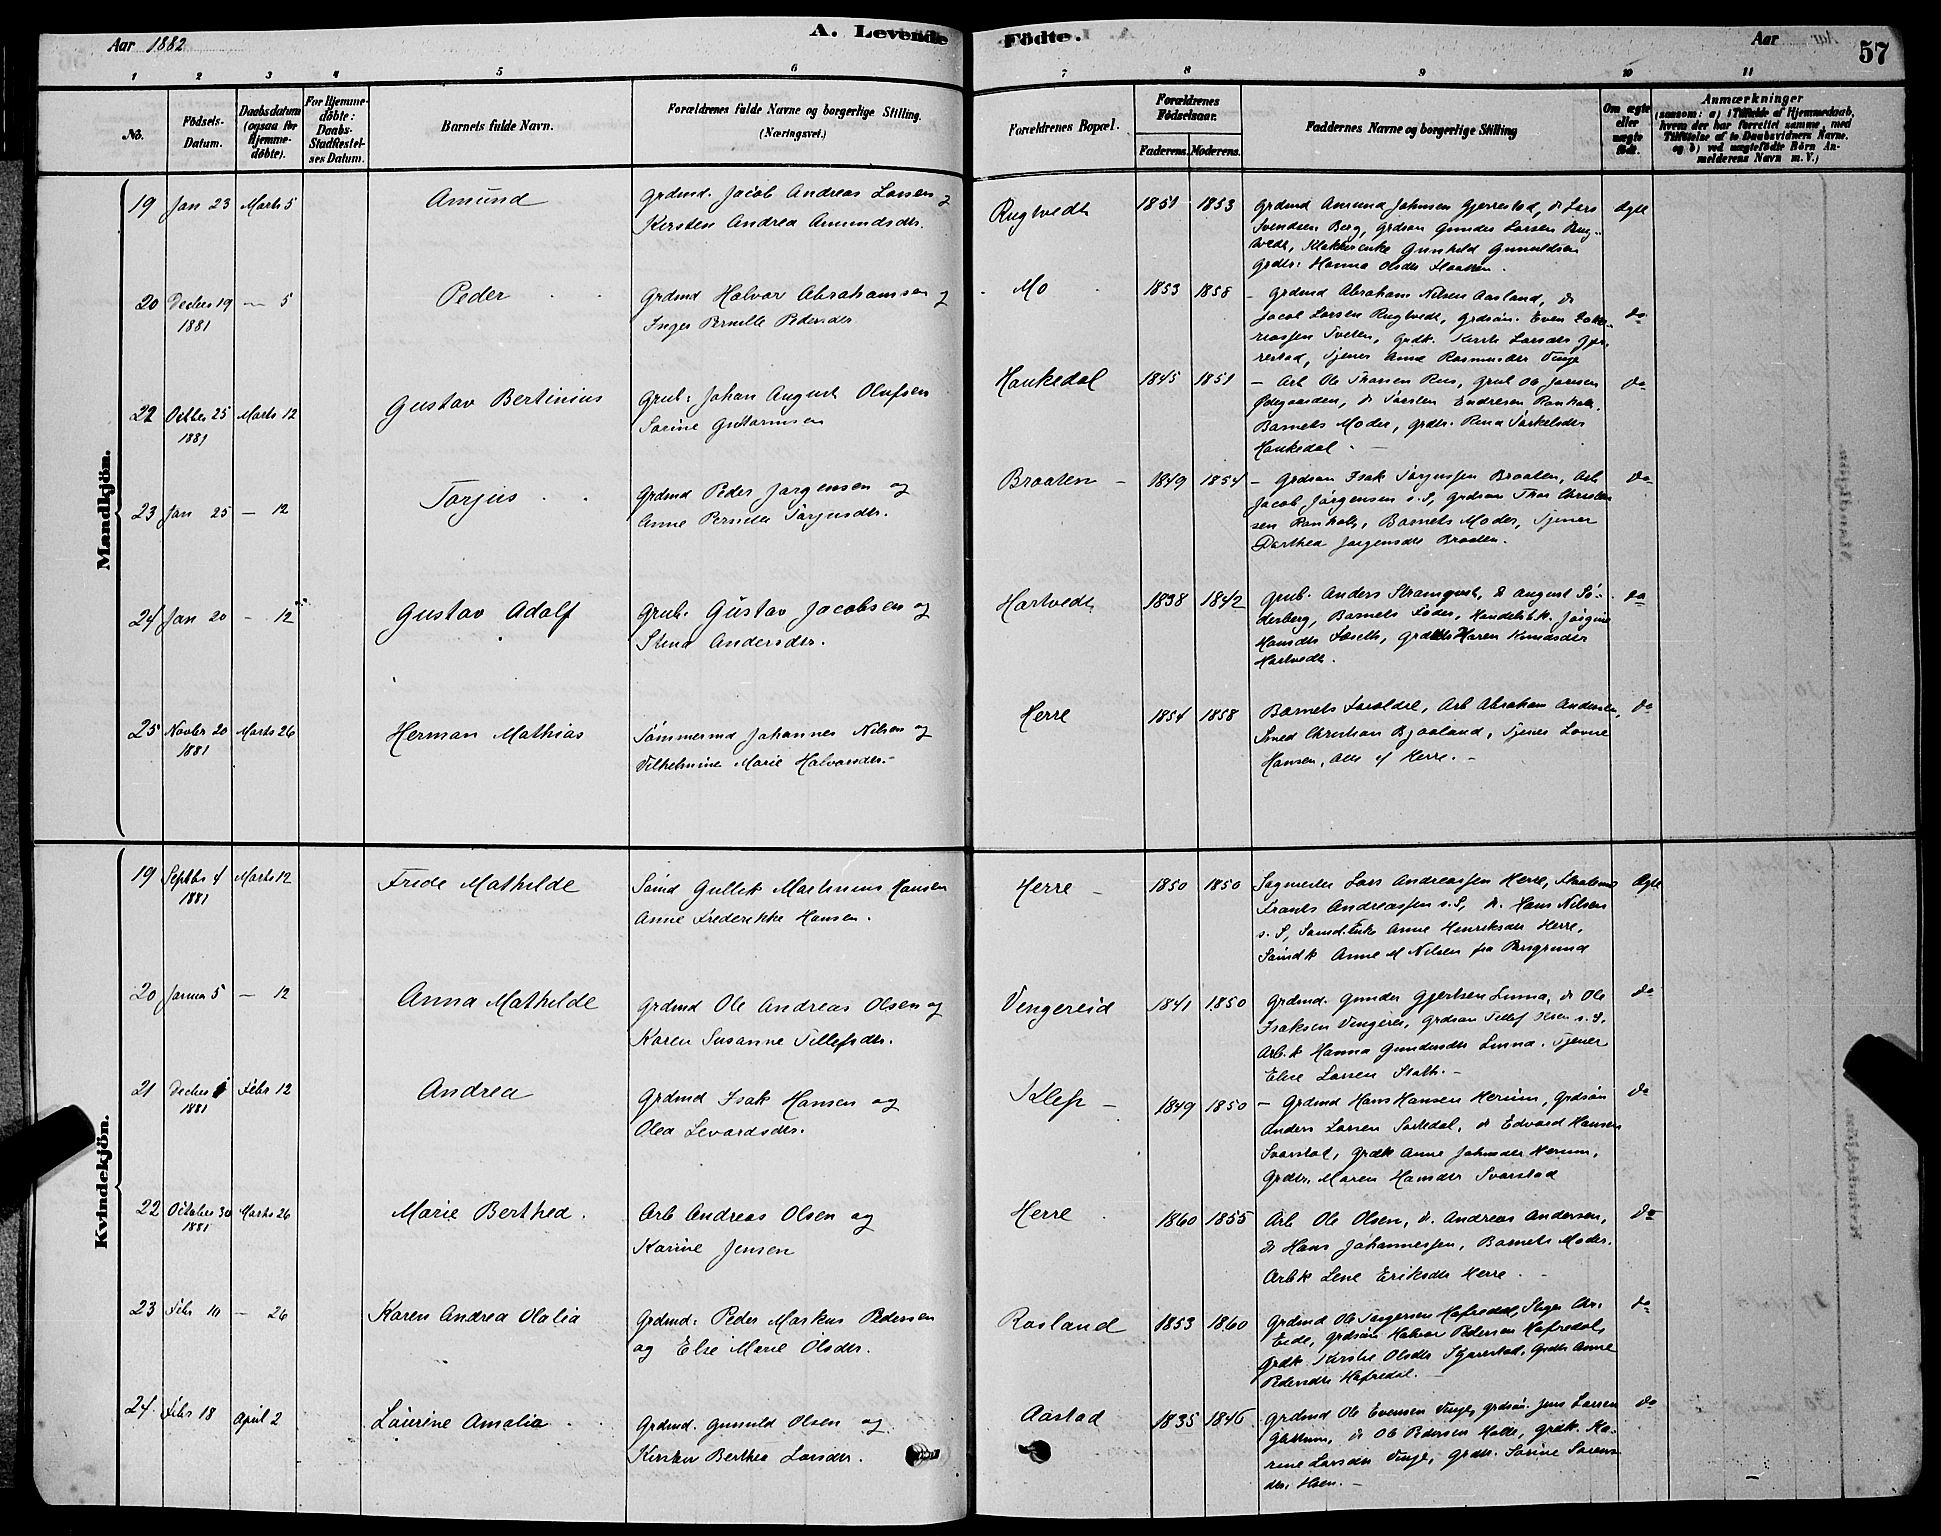 Aar 1882
A. Levende
Födte.
Aar
57
1 2 3 4 5 6 7 8 9 10 11
No.
Födsels-
Datum.
Daabsdatum
(ogsaa for
Hjemme-
döbte).
For Hjemme-
döbte:
Daabs-
Stadfestel-
ses Datum.
Barnets fulde Navn.
Forældrenes fulde Navne og borgerlige Stilling.
(Næringsvei.)
Forældrenes Bopæl.
Forældrenes
Födselsaar.
Faderens. Moderens.
Faddernes Navne og borgerlige Stilling
Om ægte
eller
uægte
født.
Anmærkninger
Mandkjön.
19 Jan 23 Marts 5 Amund
Grdmd. Jacob Andreas Larsen og
Kirsten Andrea Amundsdtr.
Rugtvedt 1851 1853
Grdmd Amund Johnsen Gjerrestad, do Lars
Svendsen Berg, Grdsøn Gunder Larsen Rug-
tvedt, Gunhild Gunuldsen
Grdtr: Hanna Olsdtr
Ægte
20 Decber 19
1881
— 5 Peder
Grdmd Halvor Abrahamsen og
Inger Pernille Pedersdtr
Mo 1853 1858
- Grdmd Abraham Nilsen Aasland, do
Jacob Larsen Rugtvedt, Grdsøn. Even
Tveten, Grdk. Larsdtr Gjer-
restad, Tjener Anna Rasmusdtr Vinje
do
22 Octber 25
1881
Marts 12 Gustav Bertinius
Grub. Johan August Olufsen
Sorine Guttormsen
Haukedal 1845 1851
- Arb Ole Thorsen Rus, Grub Ole Jansen
Ødegaarden, do Torsten Endresen Ronholt,
Barnets Moder, Grdtr. Rena Torkelsdtr
Haukedal
do
23 Jan 25 — 12 Torjus
Grdmd Peder Jørgensen og
Anne Pernille Torjusdtr.
Braaten 1849 1854
- Grdsøn Isak Torjussen Braaten, Arb
Jacob Jørgensen s. S, Grdsøn Thor Christen
sen Ronholt, Barnets Moder, Tjener
Dorthea Jørgensdtr Braaten.
do
24 Jan 20 — 12 Gustav Adolf
Grub. Gustav Jacobsen og
Stina Andersdtr.
Hartvedt 1838 1842
Grub. Anders Strømqvist, do August Sø-
derberg, Barnets Fader, Handelsk. Jørgine
Hansdtr, Grdtr Maren Knudsdtr
Hartvedt.
do
25 Novbr 20
1881
Marts 26 Herman Mathias
Tømmermd Johannes Nilsen og
Vilhelmine Marie Halvorsdtr.
Herre 1854 1858
Barnets Forældre, Arb Abraham Andersen,
Smed Christian Bjaaland, Tjener Lovise
Hansen, alle af Herre.
do
Kvindekjön.
19 Septbr 4
1881
Marts 12 Frede Mathilde
Sømd Gullik Martinius Hansen
Anne Frederikke Hansen.
Herre 1850 1850
Sagmester Lars Andreassen Herre,
Frants Andreassen s. S, do. Hans Nilsen
s. S, Sømd.Enke Anne Henriksdtr Herre,
Sømdk Anne M Nilsen fra Porsgrund
Ægte
20 Januar 5 — 12 Anna Mathilde
Grdmd Ole Andreas Olsen og
Karen Susanne Tellefsdtr.
Vengereid 1841 1850
Grdmd. Gunder Gjertsen Linna, do Ole
Isaksen Vengerei, Grdsøn Tellef Olsen s. S.
Arb.k Hanna Gundersdtr Linna. Tjener
Elise Larsen
do
21 Decber
1881
Febr 12 Andrea
Grdmd Isak Hansen og
Olea Levardsdtr.
Klep 1849 1850
- Grdmd Hans Hansen Herum, Grdsøn
Anders Larsen, do Edvard Hansen
Svarstad, Grdk Anne Johnsdtr Herum,
Grdtr. Maren Hansdtr Svarstad
do
22 October 30
1881
Marts 26 Marie Berthea.
Arb Andreas Olsen og
Karine Jensen
Herre 1860 1855
Arb Ole Olsen, do. Andreas Andersen,
do Hans Johannessen, Barnets Moder.
Arbk Lene Eriksdtr Herre.
do
23 Febr 10 — 26 Karen Andrea Olalia
Grdmd. Peder Markus Pedersen
og Else Marie Olsdtr.
Rosland 1853 1860
Grdmd Ole Hafredal,
Eide, Grdsøn Halvor Pedersen Hafredal,
Grdk. Kirstie Olsdtr, Grdtr Anne
Pedersdtr Hafredal.
do
24 Febr 18 April 2 Laurine Amalia
Grdmd. Gunuld Olsen og
Kirsten Berthea Larsdtr.
Aastad 1835 1846
Grdmd Ole Evensen Vinje, Grdsøn. Jens Larsen
, do Ole Pedersen Holte, Grdk. Ka-
rine Larsdtr Vinje, Grdtr. Sorine Sørens-
dtr.
do